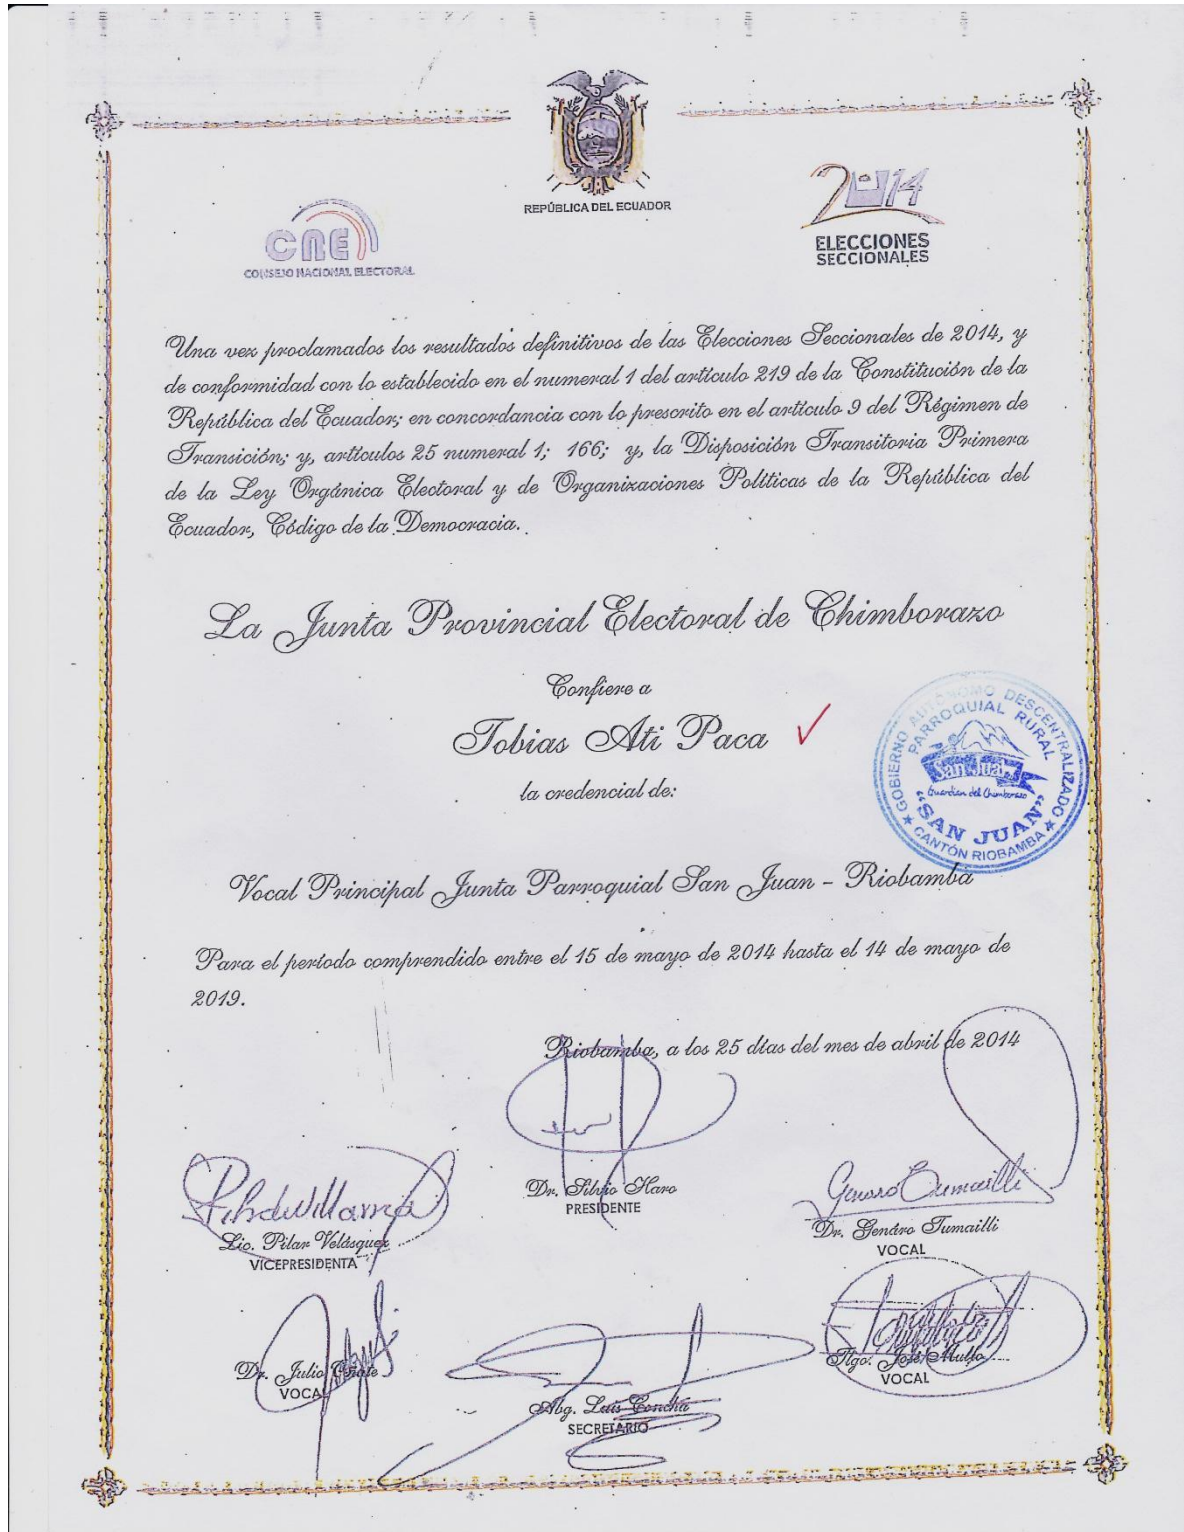 REPÚBLICA DEL ECUADOR
CNE
CONSEJO NACIONAL ELECTORAL
2014
ELECCIONES
SECCIONALES
Una vez proclamados los resultados definitivos de las Elecciones Seccionales de 2014, y
de conformidad con lo establecido en el numeral 1 del artículo 219 de la Constitución de la
República del Ecuador; en concordancia con lo prescrito en el artículo 9 del Régimen de
Transición; y, artículos 25 numeral 1; 166; y, la Disposición Transitoria Primera
de la Ley Orgánica Electoral y de Organizaciones Políticas de la República del
Ecuador, Código de la Democracia.
La Junta Provincial Electoral de Chimborazo
Confiere a
Tobias Ati Paca
la credencial de:
GOBIERNO AUTÓNOMO DESCENTRALIZADO
PARROQUIAL RURAL
San Juan
Guardian del Chimborazo
"SAN JUAN"
CANTÓN RIOBAMBA
Vocal Principal Junta Parroquial San Juan - Riobamba
Para el período comprendido entre el 15 de mayo de 2014 hasta el 14 de mayo de
2019.
Riobamba, a los 25 días del mes de abril de 2014
Dr. Silvio Haro
PRESIDENTE
Lic. Pilar Velásquez
VICEPRESIDENTA
Genaro Tumailli
Dr. Genáro Tumailli
VOCAL
Dr. Julio
VOCAL
Abg. Luis Concha
SECRETARIO
Tlgo. José Mullo
VOCAL